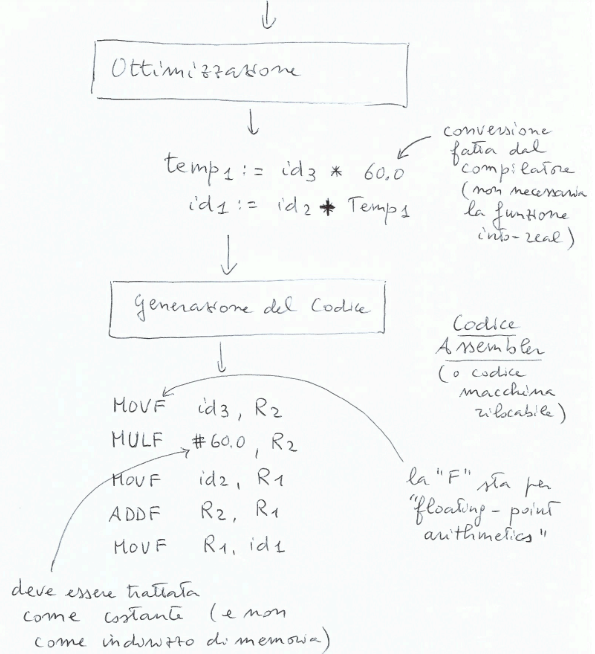 Ottimizzazione
temp1 := id3 * 60.0
id1 := id2 * Temp1
conversione
fatta dal
compilatore
(non necessaria
la funzione
into-real)
Generazione del Codice
Codice
Assembler
(o codice
macchina
rilocabile)
MOVF id3, R2
MULF #60.0, R2
MOVF id2, R1
ADDF R2, R1
MOVF R1, id1
la "F" sta per
"floating-point
arithmetics"
deve essere trattata
come costante (e non
come indirizzo di memoria)